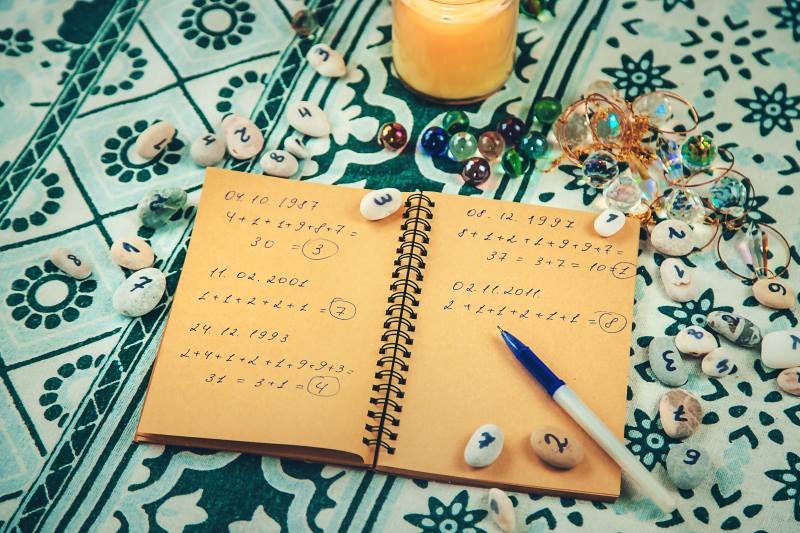 04.10.1987
4+1+1+9+8+7=
30 = 3
11.02.2001
1+1+2+2+1 = 7
24.12.1993
2+4+1+2+1+9+9+3=
31 = 3+1 = 4
08.12.1997
8+1+2+1+9+9+7=
37 = 3+7 = 10=1
02.11.2011.
2+1+1+2+1+1 = 8
3
4
2
4
2
8
2
8
1
7
3
1
2
1
9
8
3
4
7
6
1
2